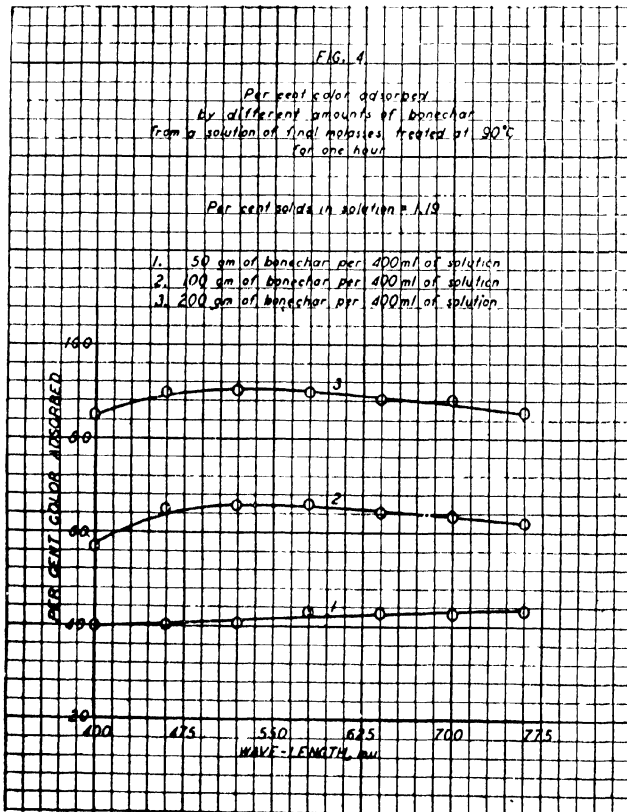 FIG. 4
Per cent color adsorbed
by different amounts of bonechar
from a solution of final molasses treated at 90°C
for one hour
Per cent solids in solution = 1.19
1. 50 gm of bonechar per 400 ml of solution
2. 100 gm of bonechar per 400 ml of solution
3. 200 gm of bonechar per 400 ml of solution
PER CENT COLOR ADSORBED
100
80
60
40
20
3
2
1
400 475 550 625 700 775
WAVE-LENGTH, mu